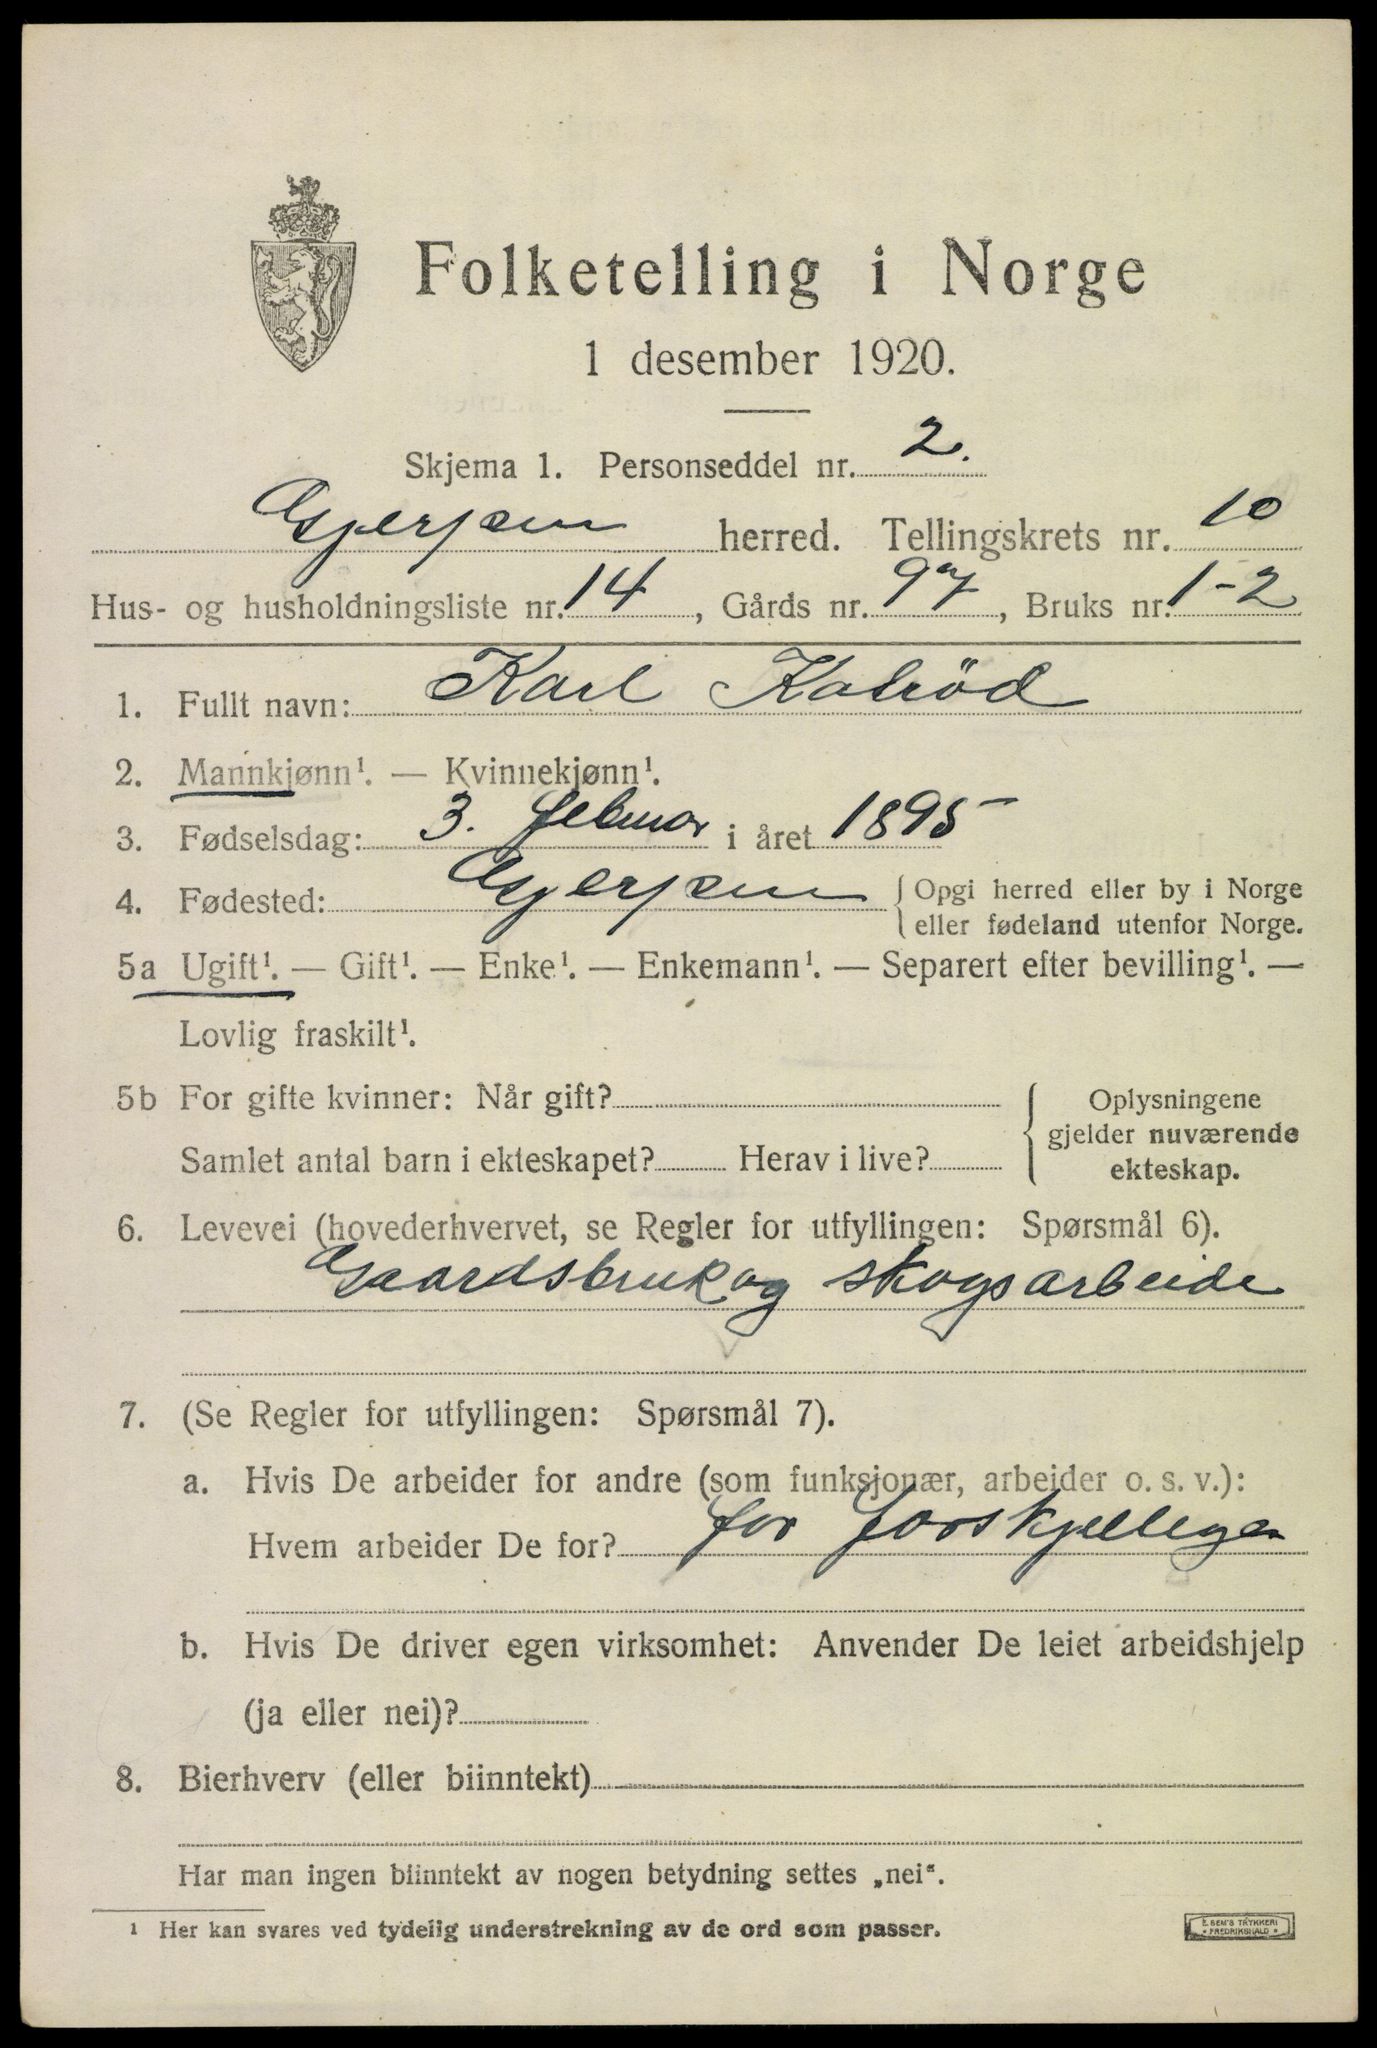 Folketelling i Norge
1 desember 1920.
Skjema 1. Personseddel nr. 2.
Gjerpen herred. Tellingskrets nr. 10
Hus- og husholdningsliste nr. 14, Gårds nr. 97, Bruks nr. 1-2
1. Fullt navn: Karl Kolrød
2. Mannkjønn¹. — Kvinnekjønn¹.
3. Fødselsdag: 3. februar i året 1895
4. Fødested: Gjerpen { Opgi herred eller by i Norge
eller fødeland utenfor Norge.
5a Ugift¹. — Gift¹. — Enke¹. — Enkemann¹. — Separert efter bevilling¹. —
Lovlig fraskilt¹.
5b For gifte kvinner: Når gift? { Oplysningene
gjelder nuværende
Samlet antal barn i ekteskapet? Herav i live?
ekteskap.
6. Levevei (hovederhvervet, se Regler for utfyllingen: Spørsmål 6).
Gaardsbruk og skogsarbeide
7. (Se Regler for utfyllingen: Spørsmål 7).
a. Hvis De arbeider for andre (som funksjonær, arbeider o. s. v.):
Hvem arbeider De for? for forskjellige
b. Hvis De driver egen virksomhet: Anvender De leiet arbeidshjelp
(ja eller nei)?
8. Bierhverv (eller biinntekt)
Har man ingen biinntekt av nogen betydning settes „nei“.
¹ Her kan svares ved tydelig understrekning av de ord som passer.
E. SEM'S TRYKKERI
FREDRIKSHALD